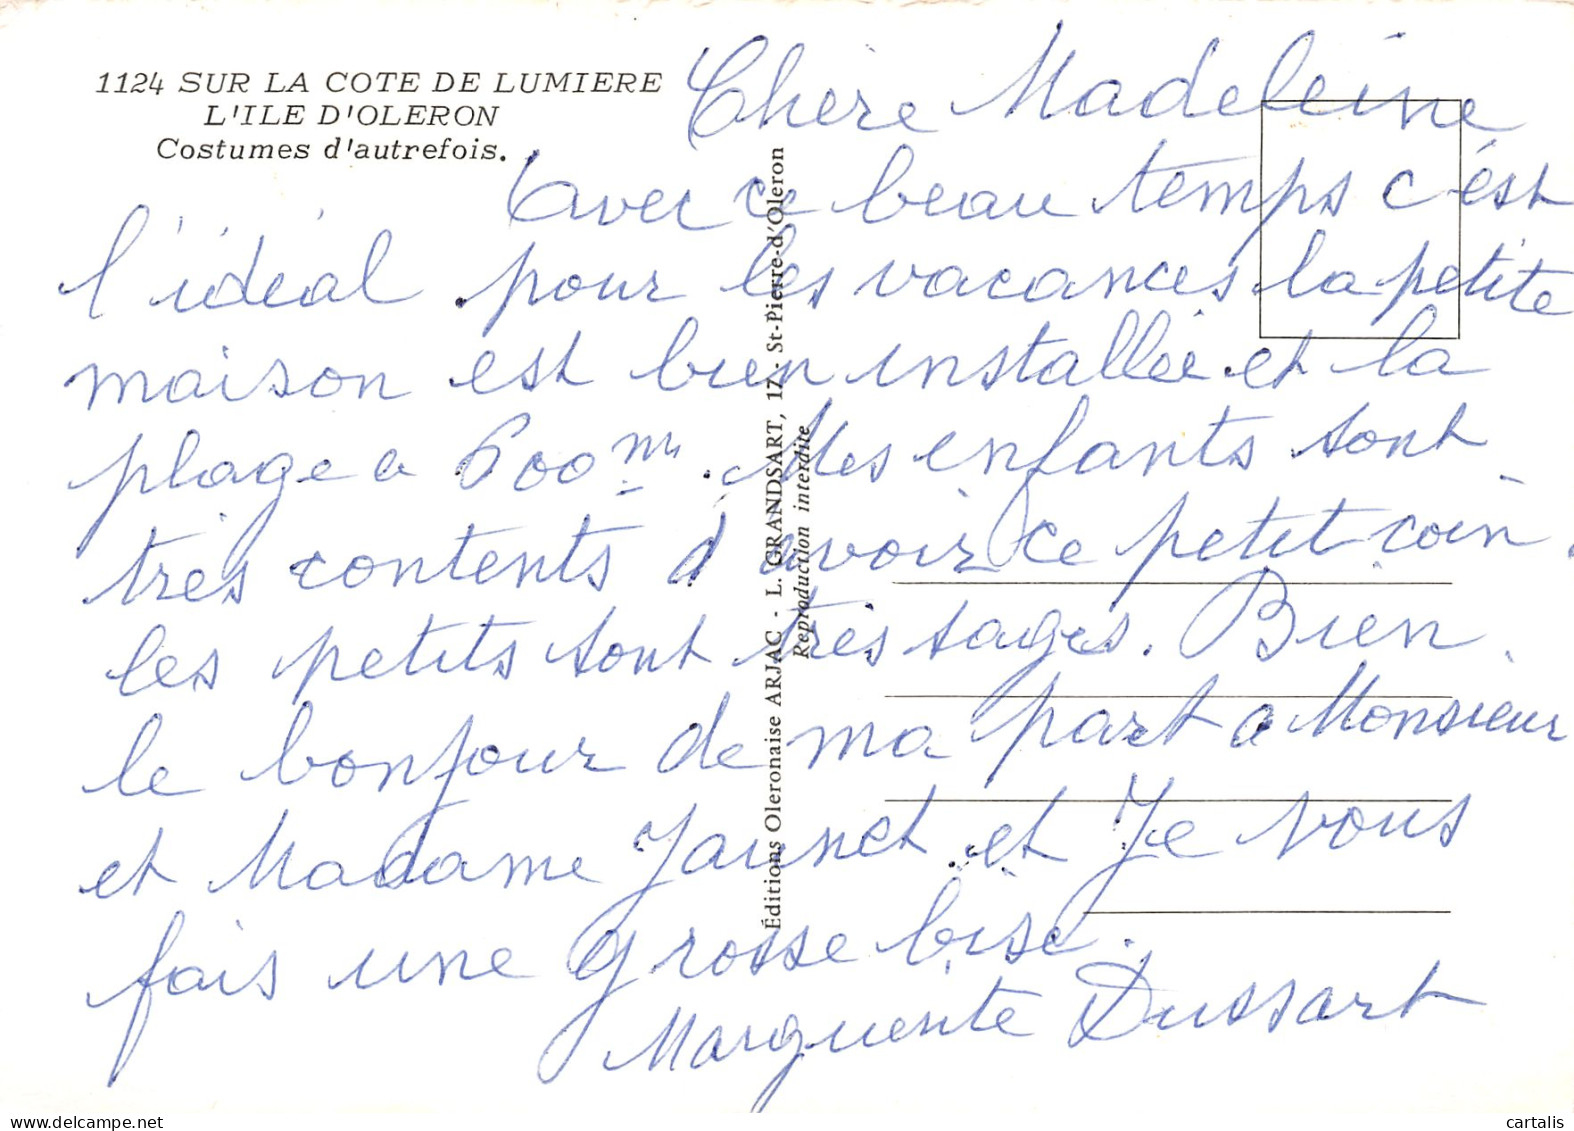 1124 SUR LA COTE DE LUMIERE
L'ILE D'OLERON
Costumes d'autrefois.
Chère Madeleine
avec ce beau temps c'est
l'idéal pour les vacances la petite
maison est bien installée et la
plage a 600 m. Mes enfants sont
très contents d'avoir ce petit coin.
les petits sont très sages. Bien
le bonjour de ma part a Monsieur
et Madame Jaunet et Je vous
fais une grosse bise.
Marguerite Dussart
Éditions Oleronaise ARJAC - L. GRANDSART, 17 - St-Pierre-d'Oleron
Reproduction interdite
delcampe.net
cartalis